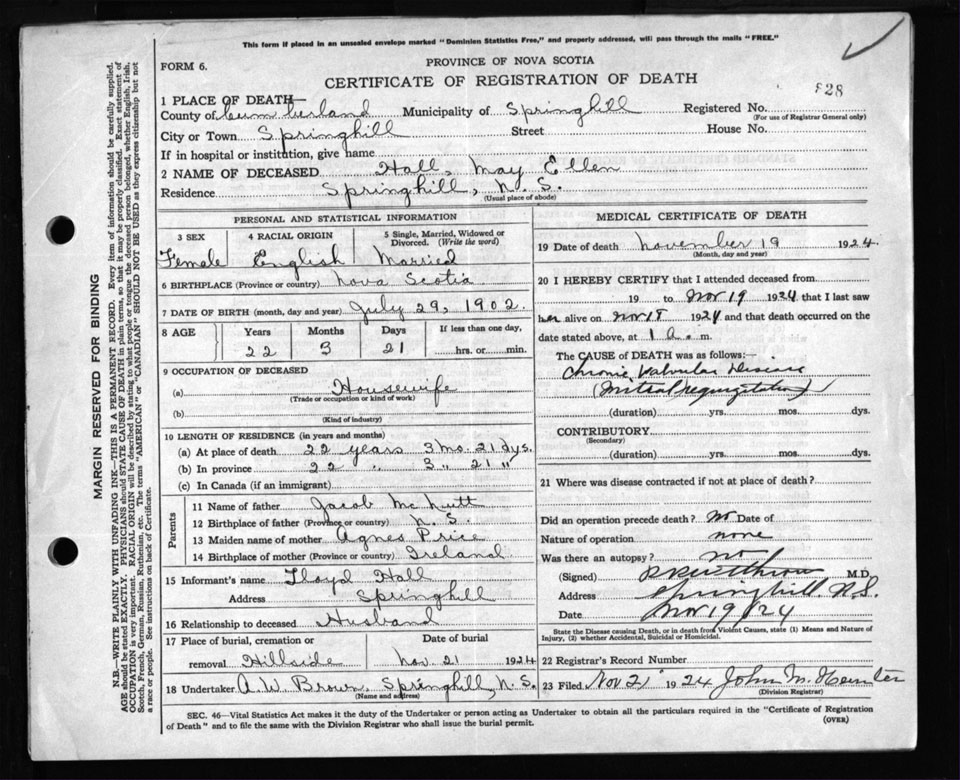 This form if placed in an unsealed envelope marked "Dominion Statistics Free," and properly addressed, will pass through the mails "FREE."
FORM 6.
PROVINCE OF NOVA SCOTIA
CERTIFICATE OF REGISTRATION OF DEATH
828
1 PLACE OF DEATH—
County of Cumberland Municipality of Springhill Registered No.
(For use of Registrar General only)
City or Town Springhill Street House No.
If in hospital or institution, give name
2 NAME OF DECEASED Hall, May Ellen
Residence Springhill, N. S.
(Usual place of abode)
MARGIN RESERVED FOR BINDING
N.B.—WRITE PLAINLY WITH UNFADING INK—THIS IS A PERMANENT RECORD. Every item of information should be carefully supplied.
AGE should be stated EXACTLY. PHYSICIANS should STATE CAUSE OF DEATH in plain terms, so that it may be properly classified. Exact statement of
OCCUPATION is very important. RACIAL ORIGIN will be described by stating to what people or tongue the deceased person belonged, whether English, Irish,
Scotch, French, German, Russian, Ruthenian, etc. The terms "AMERICAN" or "CANADIAN" SHOULD NOT BE USED as they express citizenship but not
a race or people. See instructions on back of Certificate.
PERSONAL AND STATISTICAL INFORMATION
3 SEX 4 RACIAL ORIGIN 5 Single, Married, Widowed or Divorced. (Write the word)
Female English Married
6 BIRTHPLACE (Province or country) Nova Scotia
7 DATE OF BIRTH (month, day and year) July 29, 1902.
8 AGE Years Months Days If less than one day,
22 3 21 hrs. or min.
9 OCCUPATION OF DECEASED
(a) Housewife
(Trade or occupation or kind of work)
(b)
(Kind of industry)
10 LENGTH OF RESIDENCE (in years and months)
(a) At place of death 22 years 3 mo. 21 dys.
(b) In province 22 " 3 " 21 "
(c) In Canada (if an immigrant)
Parents
11 Name of father Jacob McNutt
12 Birthplace of father (Province or country) N. S.
13 Maiden name of mother Agnes Price
14 Birthplace of mother (Province or country) Ireland
15 Informant's name Lloyd Hall
Address Springhill
16 Relationship to deceased Husband
17 Place of burial, cremation or Date of burial
removal Hillside Nov. 21 1924
18 Undertaker A. W. Brown, Springhill, N. S.
(Name and address)
MEDICAL CERTIFICATE OF DEATH
19 Date of death November 19 1924.
(Month, day and year)
20 I HEREBY CERTIFY that I attended deceased from
19 to Nov 19 1924 that I last saw
her alive on Nov 18 1924 and that death occurred on the
date stated above, at 1 a. m.
The CAUSE OF DEATH was as follows:—
Chronic Valvular Disease
(Mitral regurgitation)
(duration) yrs. mos. dys.
CONTRIBUTORY
(Secondary)
(duration) yrs. mos. dys.
21 Where was disease contracted if not at place of death?
Did an operation precede death? No Date of
Nature of operation none
Was there an autopsy? no
(Signed) M.D.
Address Springhill. N.S.
Date Nov 19/24
State the Disease causing Death, or in death from Violent Causes, state (1) Means and Nature of
Injury, (2) whether Accidental, Suicidal or Homicidal.
22 Registrar's Record Number
23 Filed Nov 21 1924 John M. Hunter
(Division Registrar)
SEC. 46—Vital Statistics Act makes it the duty of the Undertaker or person acting as Undertaker to obtain all the particulars required in the "Certificate of Registration
of Death" and to file the same with the Division Registrar who shall issue the burial permit.
(OVER)